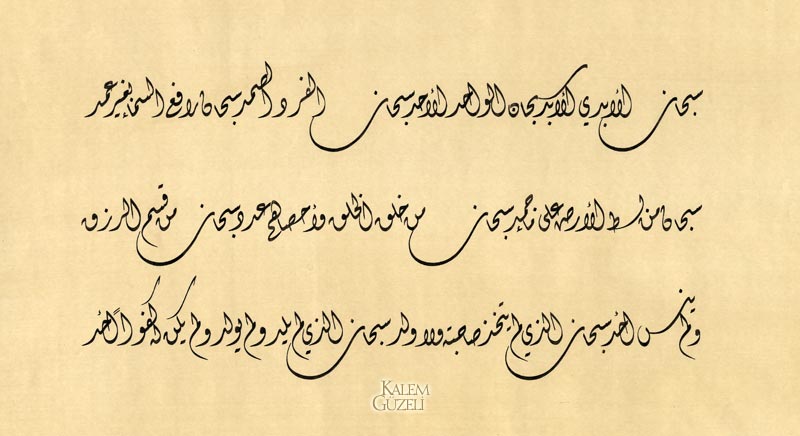 سبحان الأبدي الأبد سبحان الواحد الأحد سبحان الفرد الصمد سبحان رافع السماء بغير عمد
سبحان من بسط الأرض على ماء جمد سبحان من خلق الخلق وأحصاهم عدد سبحان من قسم الرزق
ولم ينس أحد سبحان الذي لم يتخذ صاحبة ولا ولد سبحان الذي لم يلد ولم يولد ولم يكن له كفوا أحد
KALEM
GÜZELİ